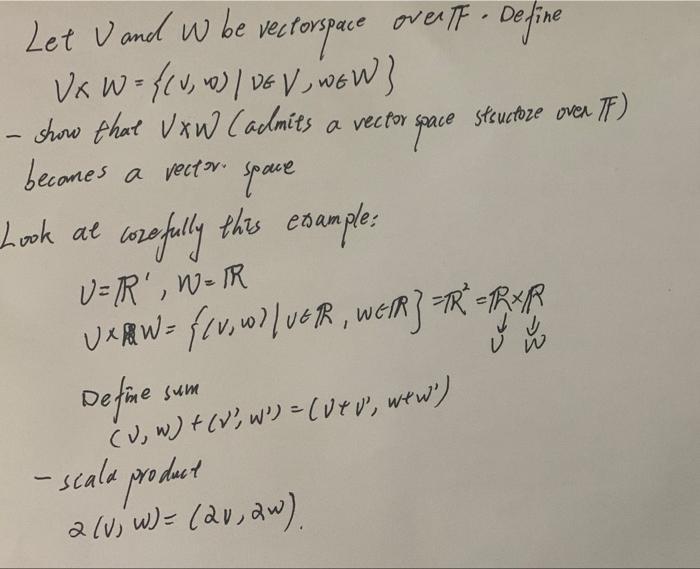 Let V and W be vectorspace over 𝔽. Define
V×W={(v,w)|v∈V,w∈W}
- show that V×W (admits a vector space structoze over 𝔽)
becomes a vector. space
Look at cozefully this example:
V=ℝ', W=ℝ
V×W={(v,w)|v∈ℝ,w∈ℝ}=ℝ²=ℝ×ℝ
↓ ↓
V W
Define sum
(v,w)+(v',w')=(v+v',w+w')
- scala product
2(v,w)=(2v,2w).